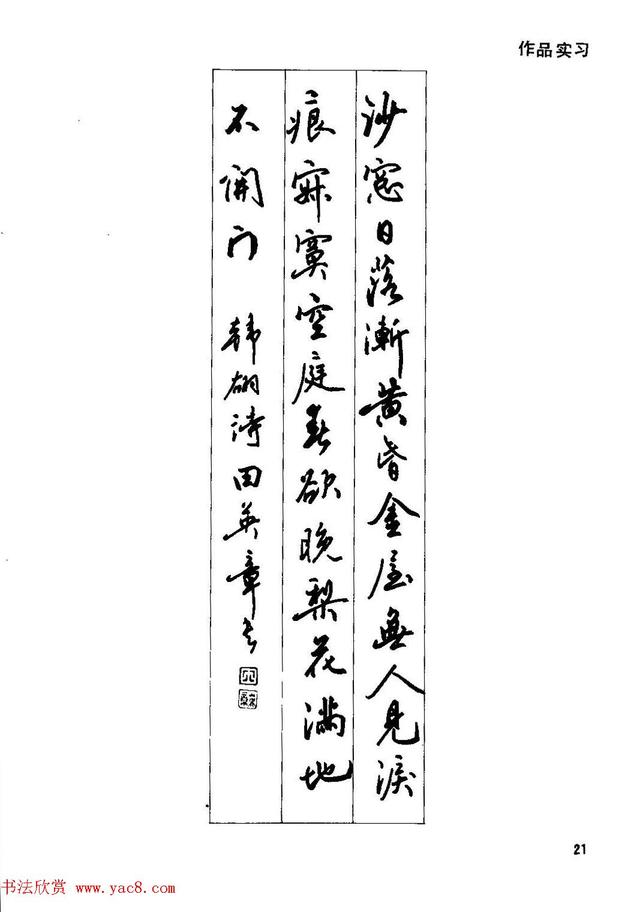 作品实习
纱窓日落渐黄昏金屋無人見淚
痕寂寞空庭春欲晚梨花满地
不開门 韩翃诗田英章书
21
书法欣赏 www.yac8.com